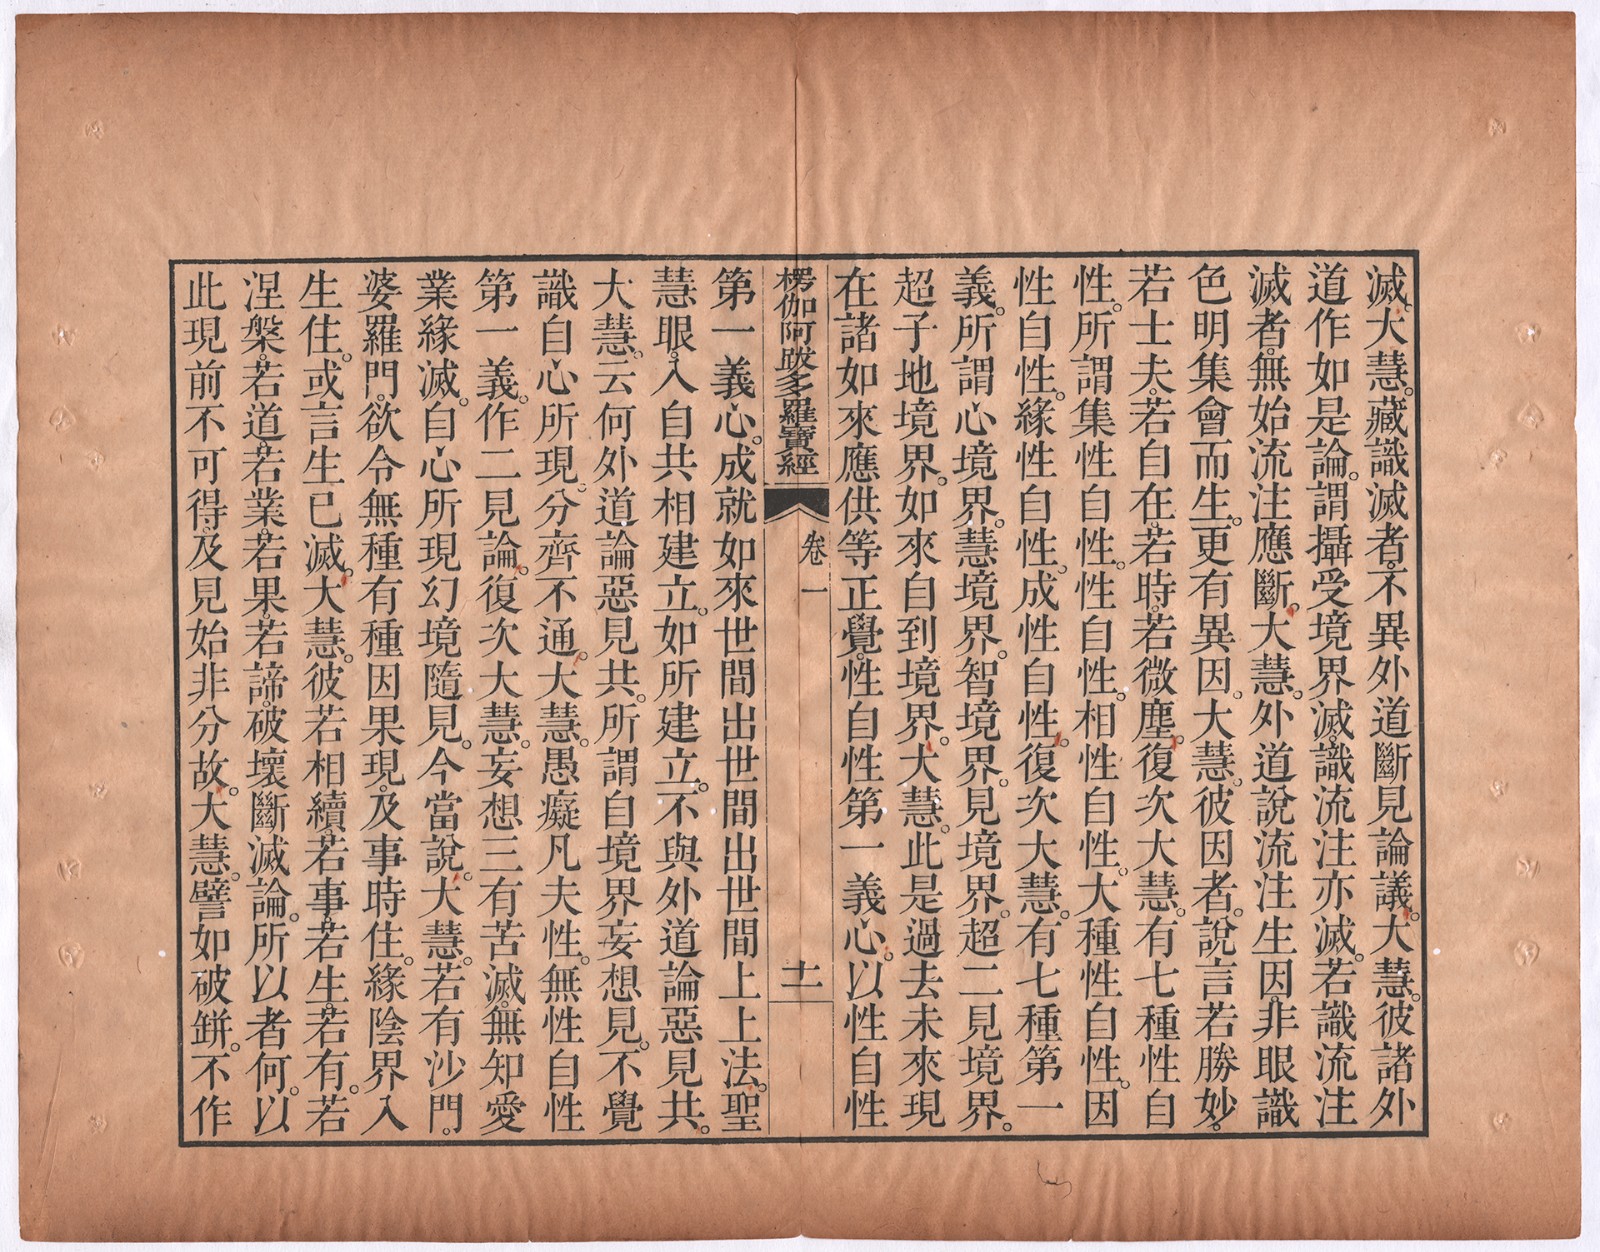 滅。大慧。藏識滅者。不異外道斷見論議。大慧。彼諸外
道作如是論。謂攝受境界滅。識流注亦滅。若識流注
滅者。無始流注應斷。大慧。外道說流注生因。非眼識
色明集會而生。更有異因。大慧。彼因者。說言若勝妙。
若士夫。若自在。若時。若微塵。復次大慧。有七種性自
性。所謂集性自性。性自性。相性自性。大種性自性。因
性自性。緣性自性。成性自性。復次大慧。有七種第一
義。所謂心境界。慧境界。智境界。見境界。超二見境界。
超子地境界。如來自到境界。大慧。此是過去未來現
在諸如來應供等正覺。性自性第一義心。以性自性
楞伽阿跋多羅寶經 卷一 十一
第一義心。成就如來世間出世間出世間上上法。聖
慧眼。入自共相建立。如所建立。不與外道論惡見共。
大慧。云何外道論惡見共。所謂自境界妄想見。不覺
識自心所現。分齊不通。大慧。愚癡凡夫性。無性自性
第一義。作二見論。復次大慧。妄想三有苦滅。無知愛
業緣滅。自心所現幻境隨見。今當說。大慧。若有沙門。
婆羅門。欲令無種有種因果現。及事時住。緣陰界入
生住。或言生已滅。大慧。彼若相續。若事。若生。若有。若
涅槃。若道。若業。若果。若諦。破壞斷滅論。所以者何。以
此現前不可得。及見始非分故。大慧。譬如破缾。不作